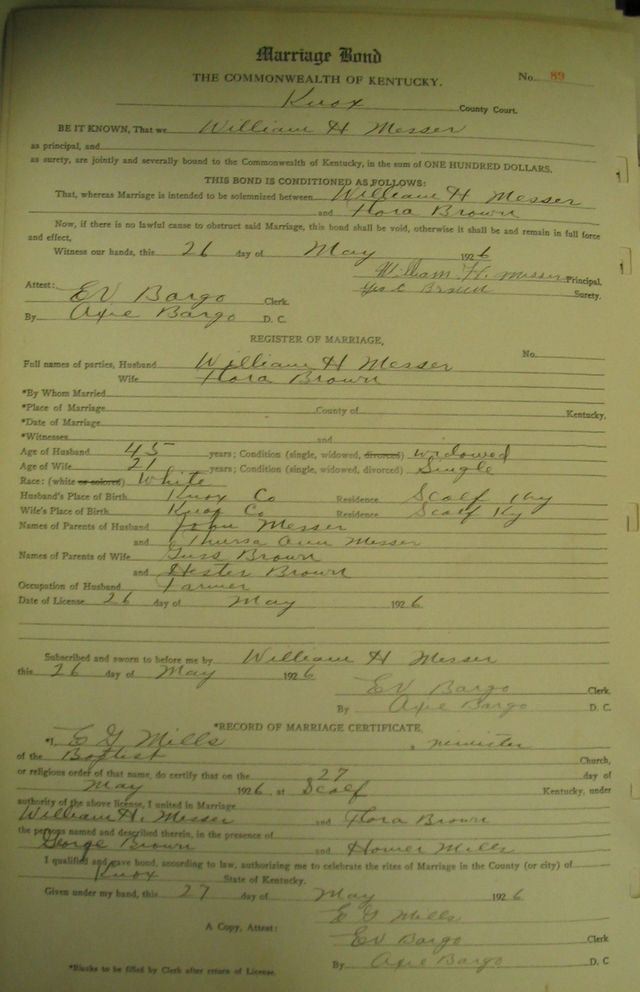 Marriage Bond
THE COMMONWEALTH OF KENTUCKY. No. 89
Knox County Court.
BE IT KNOWN, That we William H Messer
as principal, and
as surety, are jointly and severally bound to the Commonwealth of Kentucky, in the sum of ONE HUNDRED DOLLARS.
THIS BOND IS CONDITIONED AS FOLLOWS:
That, whereas Marriage is intended to be solemnized between William H Messer
and Flora Brown
Now, if there is no lawful cause to obstruct said Marriage, this bond shall be void, otherwise it shall be and remain in full force
and effect,
Witness our hands, this 26 day of May 1926
William H. Messer Principal.
Attest: Surety.
EV Bargo Clerk.
By Axie Bargo D. C.
REGISTER OF MARRIAGE,
No.
Full names of parties, Husband William H Messer
Wife Flora Brown
*By Whom Married
*Place of Marriage County of Kentucky,
*Date of Marriage
*Witnesses and
Age of Husband 45 years; Condition (single, widowed, divorced) widowed
Age of Wife 21 years; Condition (single, widowed, divorced) Single
Race: (white or colored) White
Husband's Place of Birth Knox Co Residence Scalf Ky
Wife's Place of Birth Knox Co Residence Scalf Ky
Names of Parents of Husband John Messer
and Thursa Ann Messer
Names of Parents of Wife Guss Brown
and Hester Brown
Occupation of Husband Farmer
Date of License 26 day of May 1926
Subscribed and sworn to before me by William H Messer
this 26 day of May 1926
EV Bargo Clerk.
By Axie Bargo D. C.
*RECORD OF MARRIAGE CERTIFICATE,
*I, E G Mills, minister
of the Baptist Church,
or religious order of that name, do certify that on the 27 day of
May 1926, at Scalf Kentucky, under
authority of the above license, I united in Marriage
William H. Messer and Flora Brown
the persons named and described therein, in the presence of
George Brown and Homer Mills
I qualified and gave bond, according to law, authorizing me to celebrate the rites of Marriage in the County (or city) of
Knox State of Kentucky.
Given under my hand, this 27 day of May 1926
E G Mills
A Copy, Attest: EV Bargo Clerk
By Axie Bargo D. C
*Blanks to be filled by Clerk after return of License.